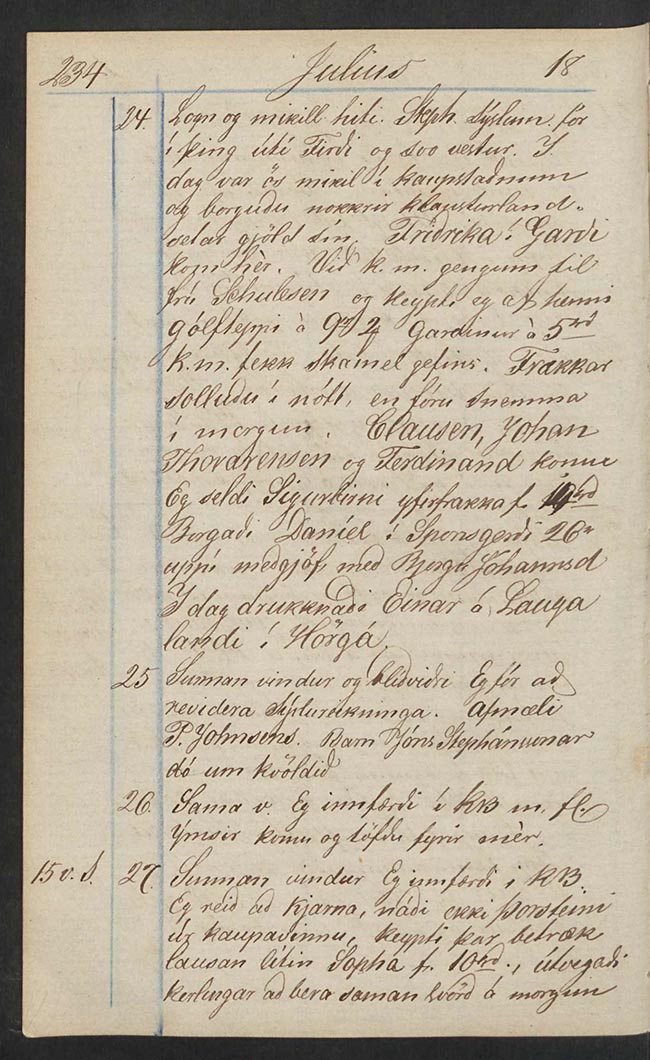 234 Julius 18
24. Logn og mikill hiti. Steph. Sýslum. fór
í þing útí Firdi og svo vestur. I
dag var ös mikil í kaupstadnum
og borgudu nokkrir klausturland-
setar gjöld sín. Fridrika í Gardi
kom hèr. Vid k. m. gengum til
frú Schulesen og keypti eg af henni
gólfteppi à 9rd 2 Gardinur à 5rd
K. m. fekk skamel gefins. Frakkar
solludu í nótt, en fóru snemma
í morgun. Clausen, Johan
Thorarensen og Ferdinand komu
Eg seldi Sigurbirni yfirfrakka f. rd
Borgadi Daníel í Sponsgerdi 26
uppí medgjöf med Björgu Jóhannsd
I dag drukknadi Einar á Lauga
landi í Hörgá.
25 Sunnan vindur og blidvidri Eg fór ad
revidera Sýslureikninga. Afmæli
P. Johnsens. Barn Jóns Stephánssonar
dó um kvöldid
26. Sama v. Eg innfærdi í KB m. fl.
Ymsir komu og töfdu fyrir mèr.
15 v. S. 27. Sunnan vindur Eg innfærdi i KB.
Eg reid ad Kjarna, nádi ekki Þorsteini
úr kaupavinnu, keypti þar betræk
lausan lítin Sopha f. 10rd., útvegadi
kerlingar ad bera saman svörd á morgun